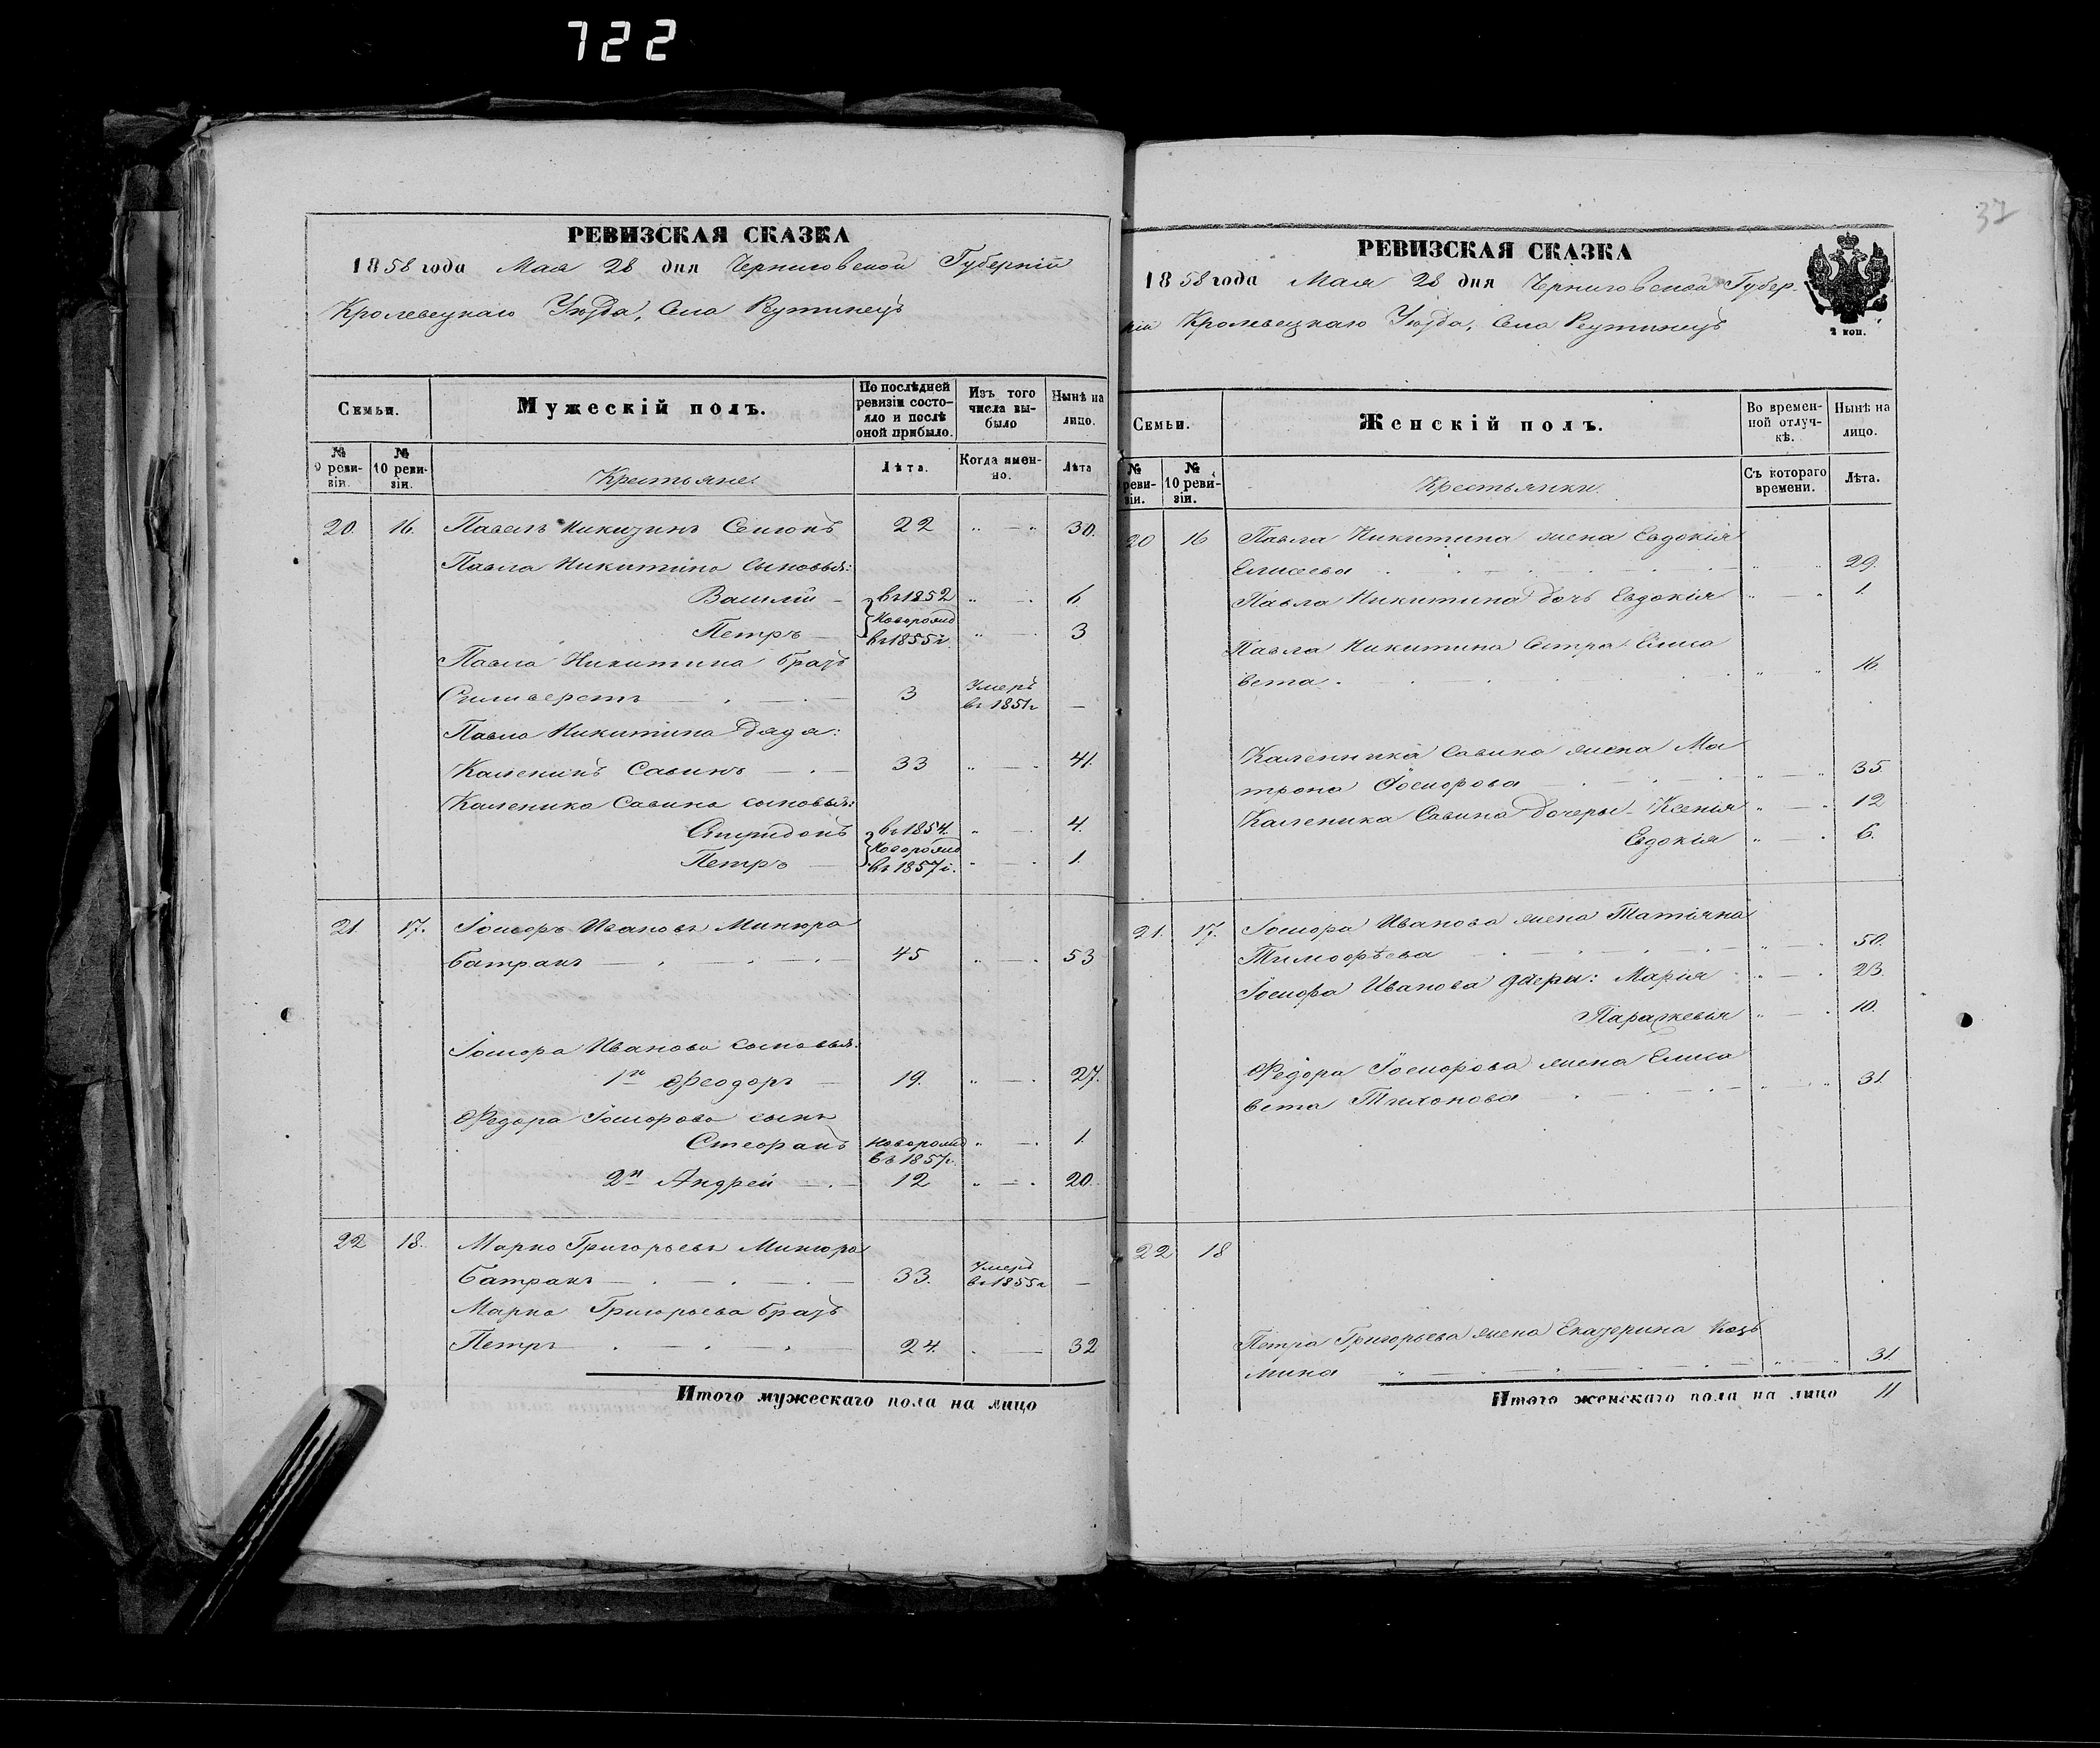 722
РЕВИЗСКАЯ СКАЗКА
1858 года Мая 28 дня Черниговской Губерніи
Кролевецкаго Уѣзда, Села Рутинецъ
Семьи.
Мужескій полъ.
По послѣдней ревизіи состояло и послѣ оной прибыло.
Изъ того числа выбыло
Нынѣ на лицо.
№ 9 ревизіи.
№ 10 ревизіи.
Крестьяне.
Лѣта.
Когда именно.
Лѣта
20. 16. Павелъ Никитинъ 22 „ — „ 30.
Павла Никитина сыновья:
Василій — въ 1852 „ — . 6
Новорожд
Петръ — въ 1855 г. „ — . 3
Павла Никитина братъ
Сильверстъ — . — . — 3 Умеръ въ 1851 г —
Павла Никитина дядя:
Каленикъ Савинъ — . — 33 „ — . 41.
Каленика Савина сыновья:
Спиридонъ въ 1854. „ — . 4.
Новорожд
Петръ — въ 1857 г. „ — . 1.
21 17. Іосифъ Ивановъ Мингора
Батракъ — . — . — . — 45 „ — . 53
Іосифа Иванова сыновья:
1й Феодоръ — 19. „ — . 27.
Федора Іосифова сынъ
Стефанъ Новорожд въ 1857 г. „ — . 1.
2й Андрей — . — 12 „ — . 20.
22 18. Марко Григорьевъ Мингора
Батракъ — . — . — . — 33. Умеръ въ 1855 г —
Марка Григорьева братъ
Петръ . — . — . — 24. . — 32
Итого мужескаго пола на лицо
37
РЕВИЗСКАЯ СКАЗКА
1858 года Мая 28 дня Черниговской Губер-
ніи Кролевецкаго Уѣзда, Села Реутинецъ
2 коп.
Семьи.
Женскій полъ.
Во временной отлучкѣ.
Нынѣ на лицо.
№ ревизіи.
№ 10 ревизіи.
Крестьянки.
Съ котораго времени.
Лѣта.
20 16 Павла Никитина жена Евдокія
Елисеева 29.
Павла Никитина дочь Евдокія „ — „ 1.
Павла Никитина сестра Елиса
вета . „ „ 16
Каленника Савина жена Ма
трона Іосифова „ — „ 35.
Каленика Савина дочери - Ксенія „ — . 12
Евдокія „ — . 6.
21. 17. Іосифа Иванова жена Татіяна
Тимофѣева „ — . 50.
Іосифа Иванова дщери: Марія „ — . 23.
Параскевія „ — . 10.
Федора Іосифова жена Елиса
вета Тихонова 31.
22 18
Петра Григорьева жена Екатерина Козь
мина 31.
Итого женскаго пола на лицо 11